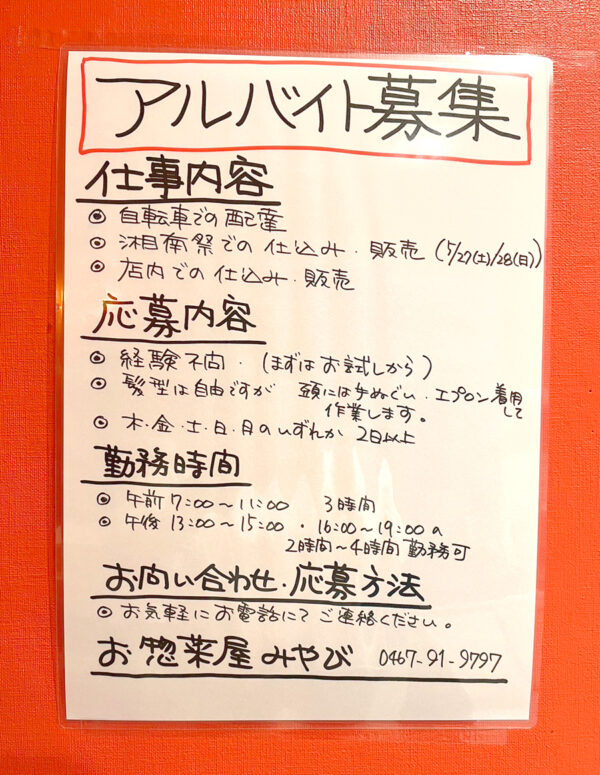 アルバイト募集
仕事内容
◉ 自転車での配達
◉ 湘南祭での仕込み・販売 (5/27(土)/28(日))
◉ 店内での仕込み・販売
応募内容
◉ 経験不問・(まずはお試しから)
◉ 髪型は自由ですが 頭には手ぬぐい・エプロン着用して
作業します。
◉ 木・金・土・日・月のいずれか 2日以上
勤務時間
◉ 午前7:00〜11:00 3時間
◉ 午後13:00〜15:00 ・ 16:00〜19:00の
2時間〜4時間 勤務可
お問い合わせ・応募方法
◉ お気軽にお電話にてご連絡ください。
お惣菜屋みやび 0467-91-9797